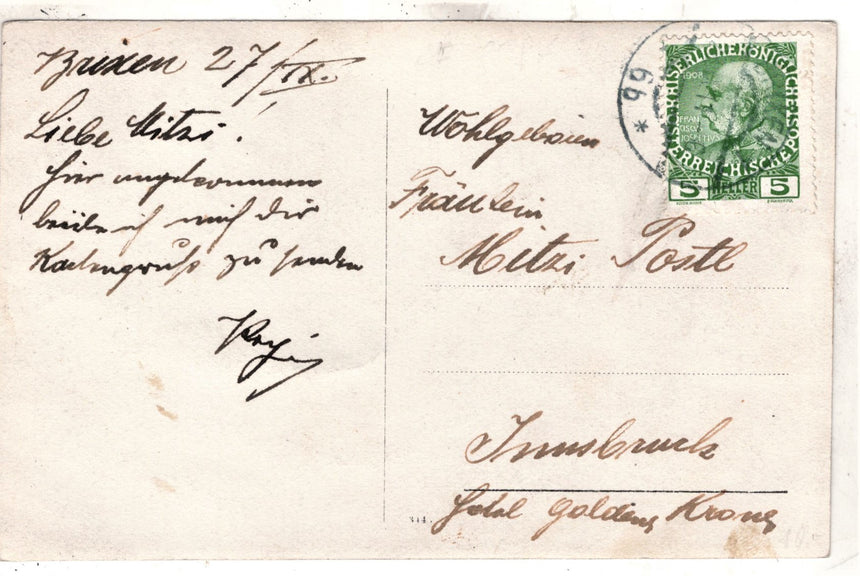 Brixen 27/IX.
Liebe Mitzi!
Hier angekommen
beeile ich mich dir
Kartengruß zu senden
Wohlgeboren
Fräulein
Mitzi Postl
Innsbruck
Hotel goldene Krone
KAISERLICHE KÖNIGLICHE ÖSTERREICHISCHE POST
1908
FRAN
IOSEPHVS I
5 HELLER 5
99
344